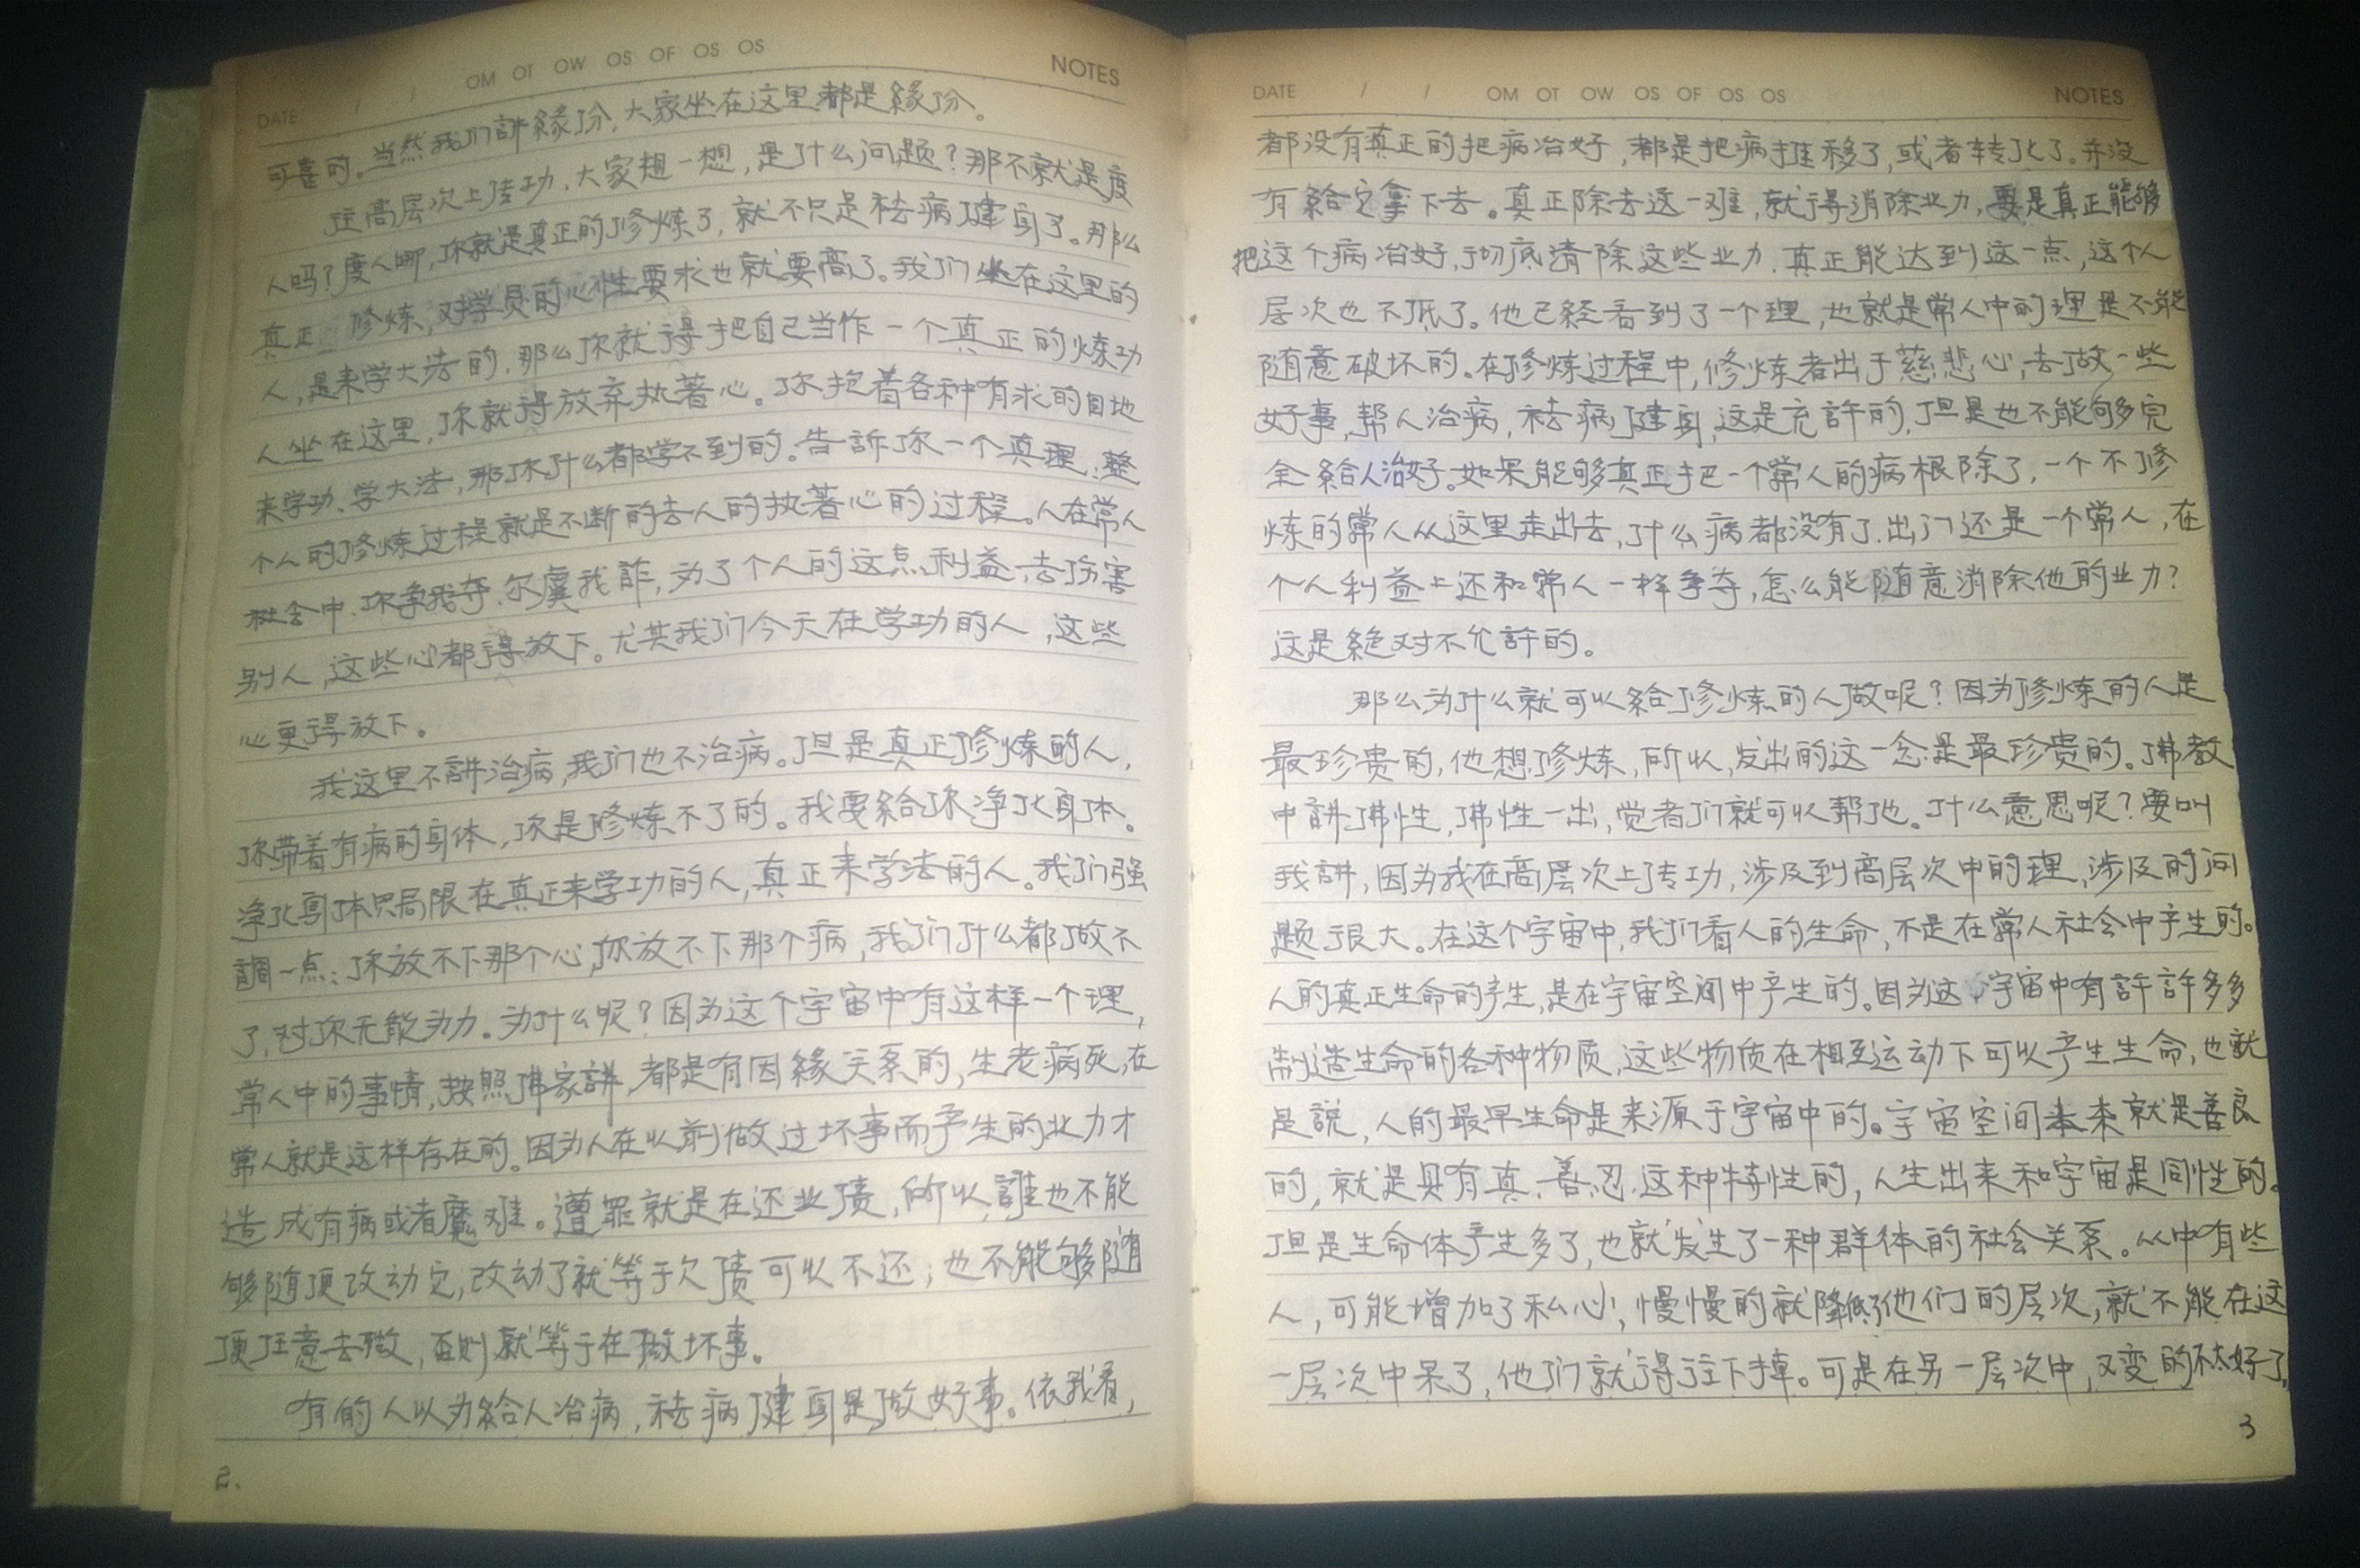 DATE / / OM OT OW OS OF OS OS NOTES
可喜的。当然我们講緣份，大家坐在这里都是緣份。
往高层次上传功，大家想一想，是什么问题？那不就是度
人吗？度人哪，你就是真正的修炼了，就不只是袪病健身了。那么
真正 修炼，对学员的心性要求也就要高了。我们坐在这里的
人，是来学大法的，那么你就得把自己当作一个真正的炼功
人坐在这里，你就得放弃执著心。你抱着各种有求的目地
来学功、学大法，那你什么都学不到的。告訴你一个真理：整
个人的修炼过程就是不断的去人的执著心的过程。人在常人
社会中，你争我夺，尔虞我詐，为了个人的这点利益，去伤害
别人，这些心都得放下。尤其我们今天在学功的人，这些
心更得放下。
我这里不講治病，我们也不治病。但是真正修炼的人，
你带着有病的身体，你是修炼不了的。我要給你净化身体。
净化身体只局限在真正来学功的人，真正来学法的人。我们强
調一点：你放不下那个心，你放不下那个病，我们什么都做不
了，对你无能为力。为什么呢？因为这个宇宙中有这样一个理，
常人中的事情，按照佛家講，都是有因緣关系的，生老病死，在
常人就是这样存在的。因为人在以前做过坏事而产生的业力才
造成有病或者魔难。遭罪就是在还业债，所以，誰也不能
够随便改动它，改动了就等于欠债可以不还；也不能够随
便任意去做，否则就等于在做坏事。
有的人以为給人治病，袪病健身是做好事。依我看，
2.
DATE / / OM OT OW OS OF OS OS NOTES
都没有真正的把病治好，都是把病推移了，或者转化了。并没
有給它拿下去。真正除去这一难，就得消除业力，要是真正能够
把这个病治好，彻底清除这些业力，真正能达到这一点，这个人
层次也不低了。他已经看到了一个理，也就是常人中的理是不能
随意破坏的。在修炼过程中，修炼者出于慈悲心，去做一些
好事，帮人治病，袪病健身，这是充許的，但是也不能够多完
全給人治好。如果能够真正把一个常人的病根除了，一个不修
炼的常人从这里走出去，什么病都没有了，出门还是一个常人，在
个人利益上还和常人一样争夺，怎么能随意消除他的业力？
这是絕对不允許的。
那么为什么就可以給修炼的人做呢？因为修炼的人是
最珍贵的，他想修炼，所以，发出的这一念是最珍贵的。佛教
中講佛性，佛性一出，觉者们就可以帮他。什么意思呢？要叫
我講，因为我在高层次上传功，涉及到高层次中的理，涉及的问
题很大。在这个宇宙中，我们看人的生命，不是在常人社会中产生的。
人的真正生命的产生，是在宇宙空间中产生的。因为这 宇宙中有許許多多
制造生命的各种物质，这些物质在相互运动下可以产生生命，也就
是說，人的最早生命是来源于宇宙中的。宇宙空间本来就是善良
的，就是具有真、善、忍、这种特性的，人生出来和宇宙是同性的。
但是生命体产生多了，也就发生了一种群体的社会关系。从中有些
人，可能增加了私心，慢慢的就降低了他们的层次，就不能在这
一层次中呆了，他们就得往下掉。可是在另一层次中，又变的不太好了，
3